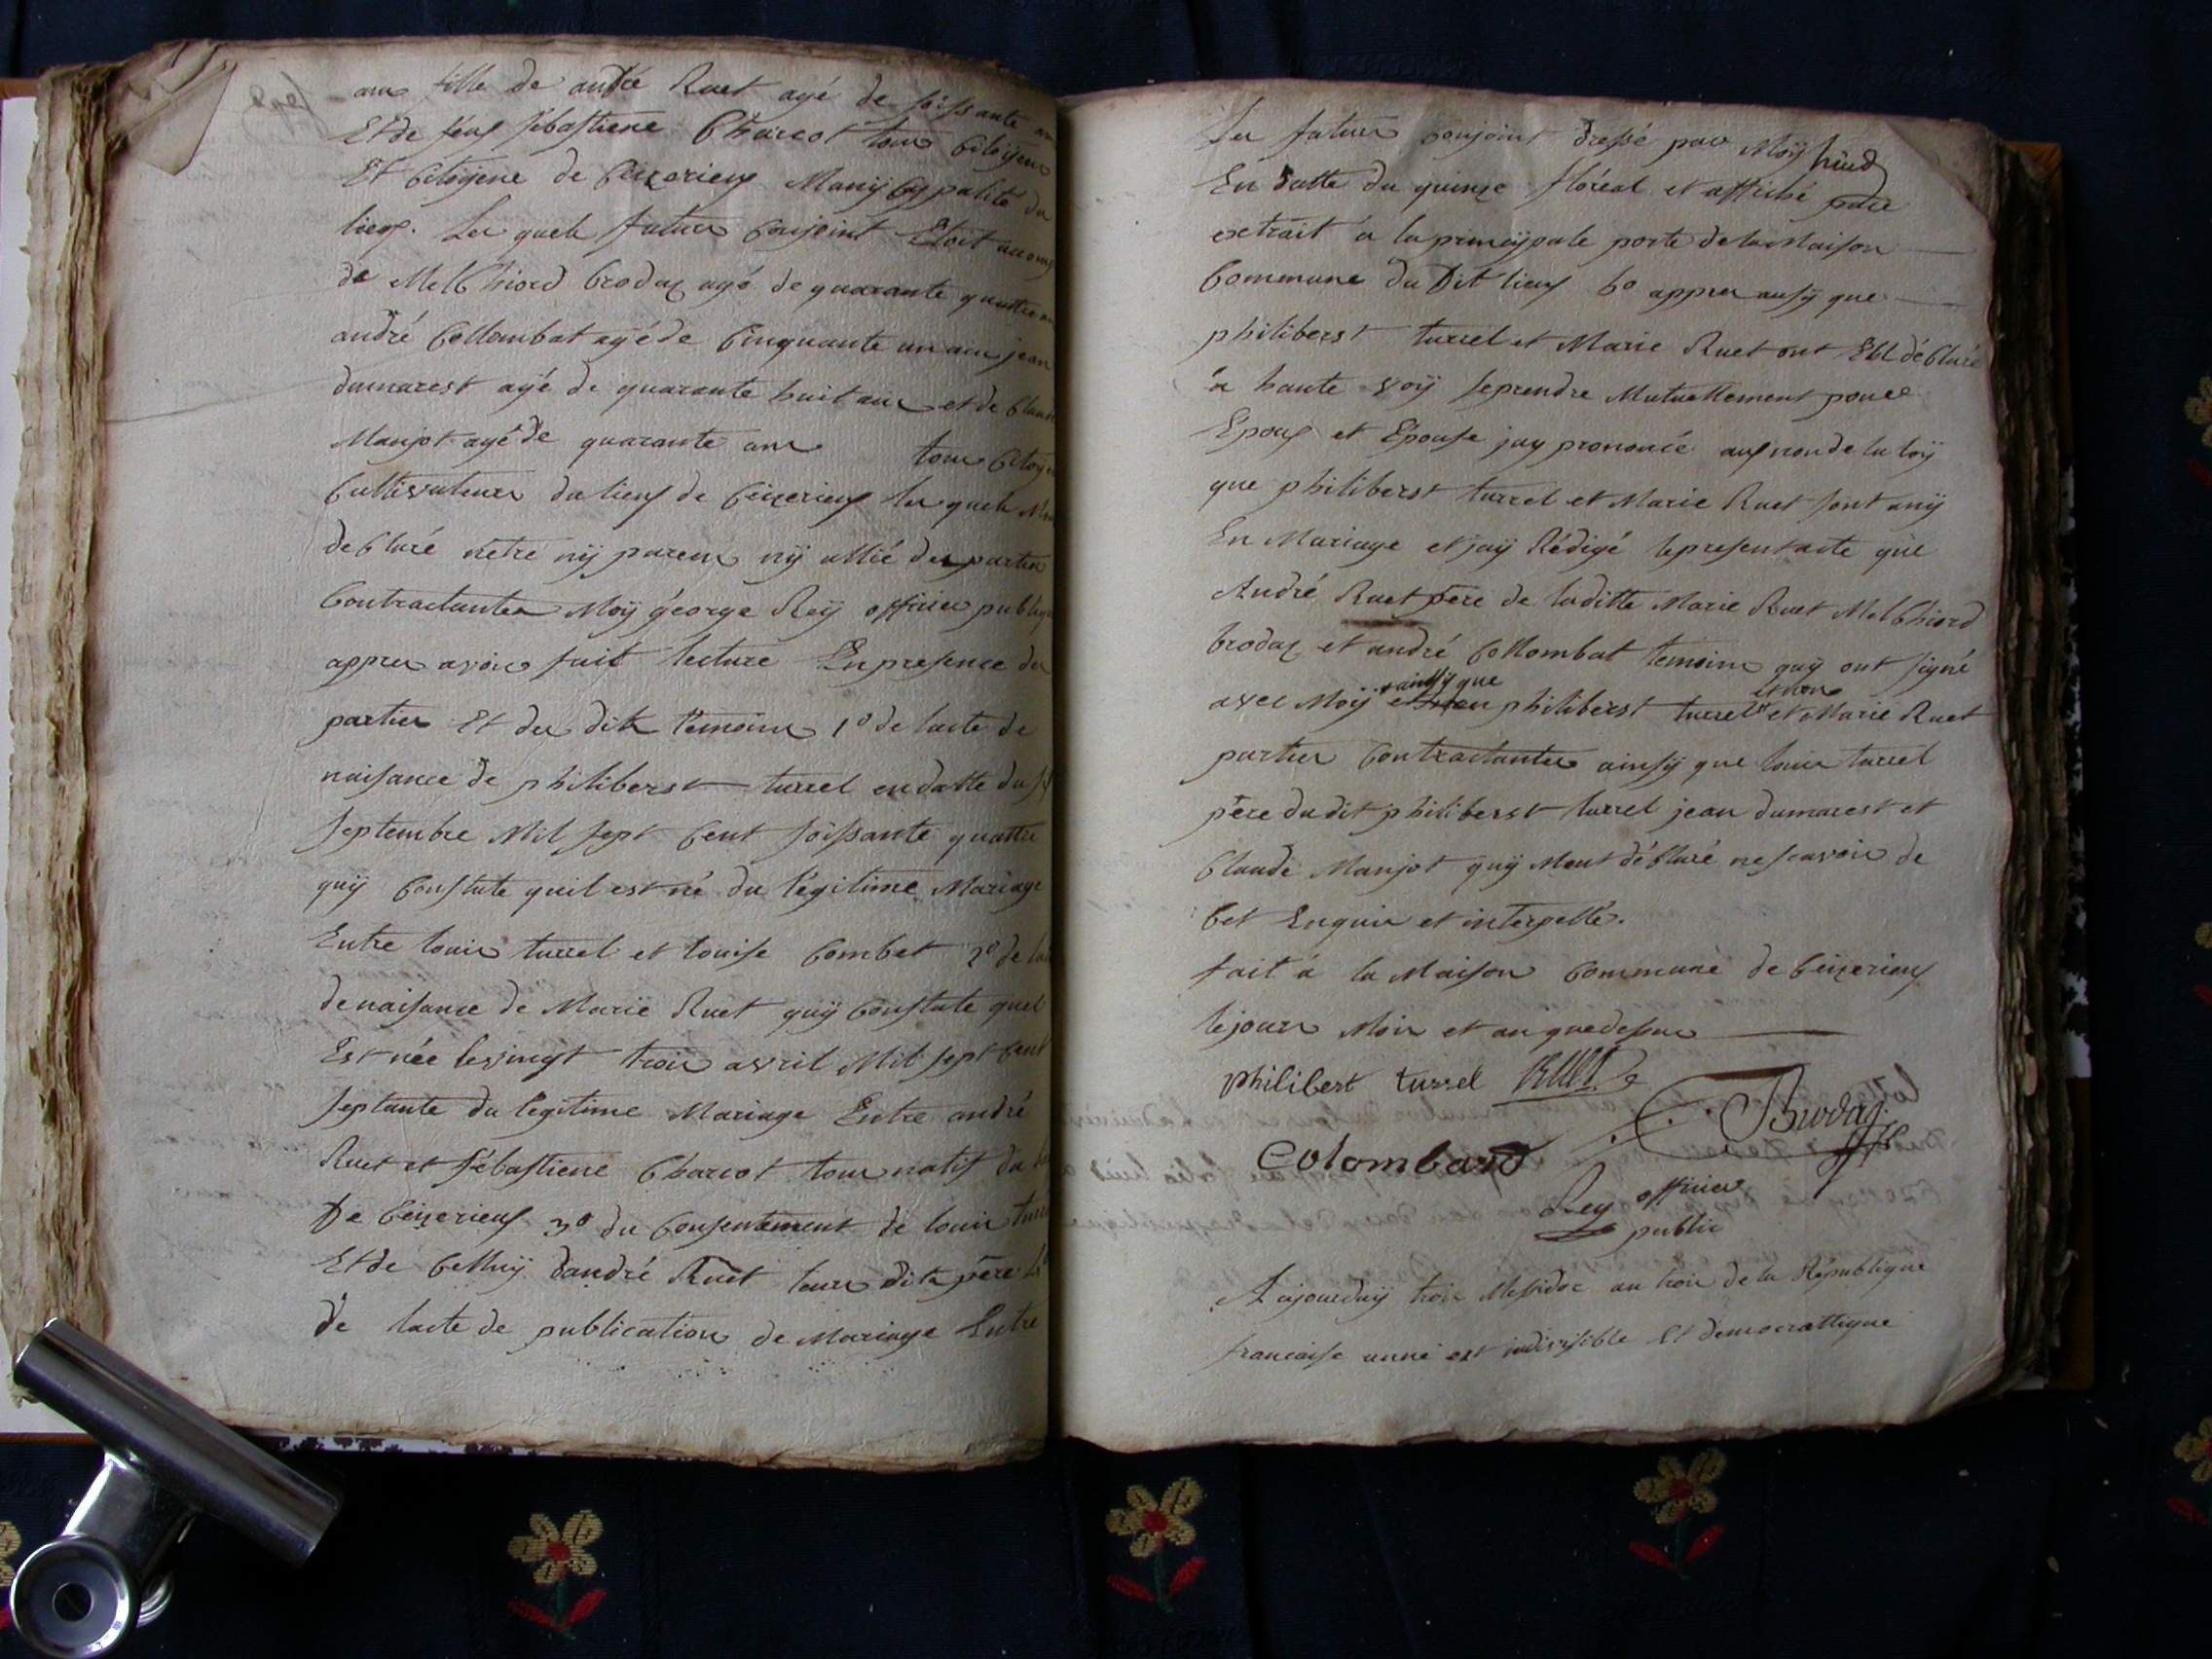 ans fille de andré Ruet agé de soissante an
Et de feuf sébastiene Charcot tous Citoyens
Et Citoyene de Ceizerieuf Municypalité du
lieuf. Les quels futurs Conjoint Etoit accom
de Melchiord brodaz agé de quarante quattre an
andré Collombat agé de Cinquante un ans jean
dumarest agé de quarante huit ans et de Claude
Manjot agé de quarante ans tous Citoy
Cultivateurs du lieuf de Ceizerieuf les quels M
declaré nêtre nÿ parens nÿ allié des parties
Contractantes Moÿ george Reÿ officier publiq
appres avoir fait lecture En presence des
parties Et des dits temoins 1º de lacte de
naisance de philiberst turrel en datte du
septembre Mil sept Cent soissante quattre
quÿ Constate quil est né du légitime Mariage
Entre louis turrel et louise Combet 2º de la
de naisance de Marie Ruet quÿ Constate quel
Est née le vingt trois avril Mil sept Cent
septante du legitime Mariage Entre andré
Ruet et sébastiene Charcot tous natif du
De Ceizerieuf 3º du Consentement de louis turr
Et de Celluÿ dandré Ruet leurs dits père
de lacte de publication de Mariage Entre
Les futurs Conjoint dressé par Moÿ
En datte du quinze floréal et affiché pare
extrait a la principale porte de la Maison
Commune du Dit lieuf 6º appres ausÿ que
philiberst turrel et Marie Ruet ont Eut déclaré
à haute voÿ se prendre Mutuellement pour
Epouf et Epouse jay prononcé auf non de la loÿ
que philiberst turrel et Marie Ruet sont unÿ
En Mariage et jaÿ Rédigé le present acte que
André Ruet père de laditte Marie Ruet Melchiord
brodaz et andré Collombat temoins quÿ ont signé
avec Moÿ ainsÿ que philiberst turrel et non et Marie Ruet
parties Contractantes ainsÿ que louis turrel
père dudit philiberst turrel jean dumarest et
Claude Manjot quÿ Mont déclaré ne scavoir de
Cet Enquis et interpellé.
fait à la Maison Commune de Ceizerieuf
le jour Mois et an que desus
philibert turrel Ruet
Brodaz
Colombard
Rey officier
public
Aujourduÿ trois Messidor an trois de la République
francaise unne est indivisible Et democrattique